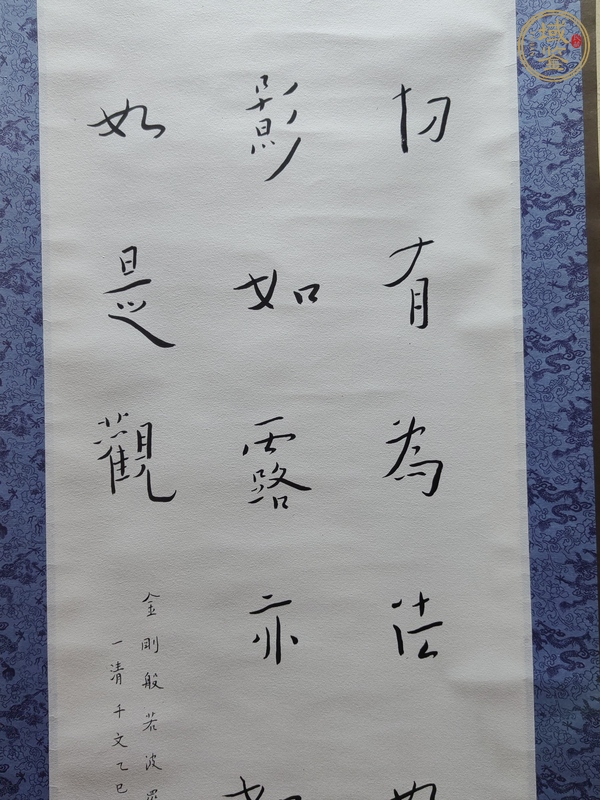 切有為法如
影如露亦如
如是觀
金剛般若波
一清千文乙巳